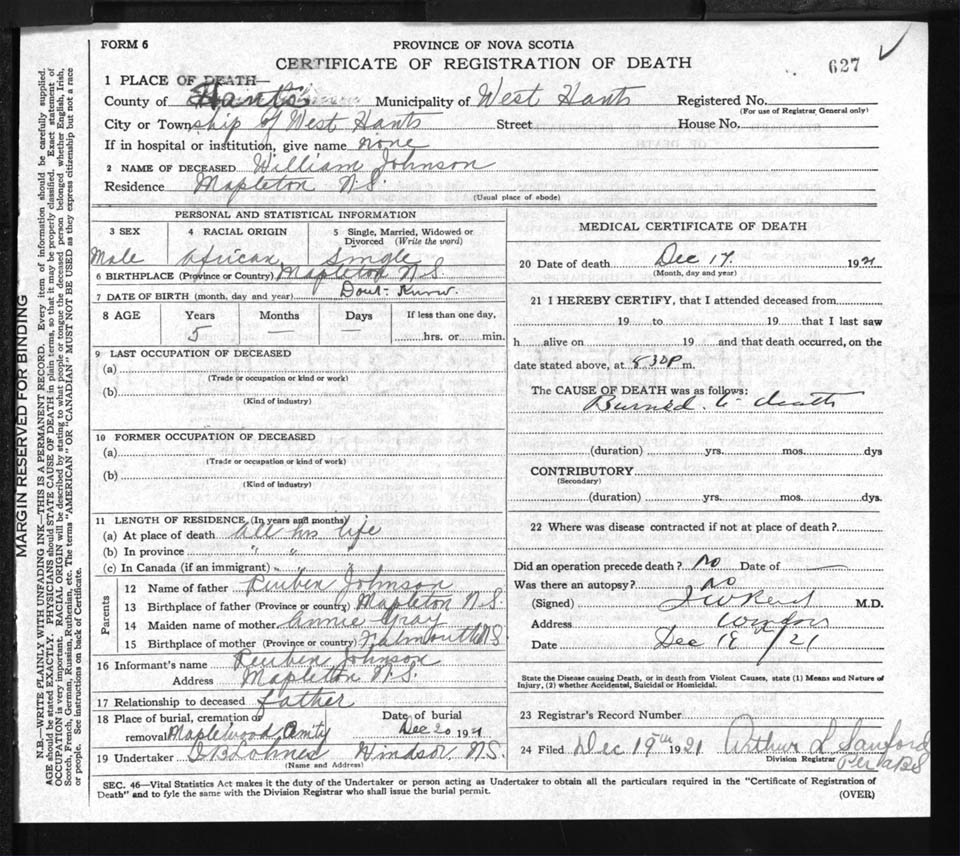 FORM 6
PROVINCE OF NOVA SCOTIA
CERTIFICATE OF REGISTRATION OF DEATH
627
1 PLACE OF DEATH—
County of Hants Municipality of West Hants Registered No.
(For use of Registrar General only)
City or Township of West Hants Street House No.
If in hospital or institution, give name none
2 NAME OF DECEASED William Johnson
Residence Mapleton N.S.
(Usual place of abode)
PERSONAL AND STATISTICAL INFORMATION
3 SEX 4 RACIAL ORIGIN 5 Single, Married, Widowed or Divorced (Write the word)
Male African Single
6 BIRTHPLACE (Province or Country) Mapleton N S
7 DATE OF BIRTH (month, day and year) Dont Know.
8 AGE Years Months Days If less than one day,
5 — — hrs. or min.
9 LAST OCCUPATION OF DECEASED
(a)
(Trade or occupation or kind or work)
(b)
(Kind of industry)
10 FORMER OCCUPATION OF DECEASED
(a)
(Trade or occupation or kind of work)
(b)
(Kind of industry)
11 LENGTH OF RESIDENCE (In years and months)
(a) At place of death all his life
(b) In province " " "
(c) In Canada (if an immigrant) " "
Parents
12 Name of father Reuben Johnson
13 Birthplace of father (Province or country) Mapleton N.S.
14 Maiden name of mother Annie Gray
15 Birthplace of mother (Province or country) Falmouth N S
16 Informant's name Reuben Johnson
Address Mapleton N.S.
17 Relationship to deceased father
18 Place of burial, cremation or removal Maplewood Date of burial Dec 20 1921
19 Undertaker Windsor N.S.
(Name and Address)
MEDICAL CERTIFICATE OF DEATH
20 Date of death Dec 17. 1921
(Month, day and year)
21 I HEREBY CERTIFY, that I attended deceased from
19 to 19 that I last saw
h alive on 19 and that death occurred, on the
date stated above, at 8.30P m.
The CAUSE OF DEATH was as follows:
Burned to death
(duration) yrs. mos. dys
CONTRIBUTORY
(Secondary)
(duration) yrs. mos. dys.
22 Where was disease contracted if not at place of death?
Did an operation precede death? No Date of —
Was there an autopsy? No
(Signed) M.D.
Address Windsor
Date Dec 18th/21
State the Disease causing Death, or in death from Violent Causes, state (1) Means and Nature of
Injury, (2) whether Accidental, Suicidal or Homicidal.
23 Registrar's Record Number
24 Filed Dec 19th 1921 Arthur L Sanford
Division Registrar
SEC. 46—Vital Statistics Act makes it the duty of the Undertaker or person acting as Undertaker to obtain all the particulars required in the "Certificate of Registration of
Death" and to fyle the same with the Division Registrar who shall issue the burial permit.
(OVER)
MARGIN RESERVED FOR BINDING
N.B.—WRITE PLAINLY WITH UNFADING INK—THIS IS A PERMANENT RECORD. Every item of information should be carefully supplied.
AGE should be stated EXACTLY. PHYSICIANS should STATE CAUSE OF DEATH in plain terms, so that it may be properly classified. Exact statement of
OCCUPATION is very important. RACIAL ORIGIN will be described by stating to what people or tongue the deceased person belonged, whether English, Irish,
Scotch, French, German, Russian, Ruthenian, etc. The terms "AMERICAN" OR "CANADIAN" MUST NOT BE USED as they express citizenship but not a race
or people. See instructions on back of Certificate.